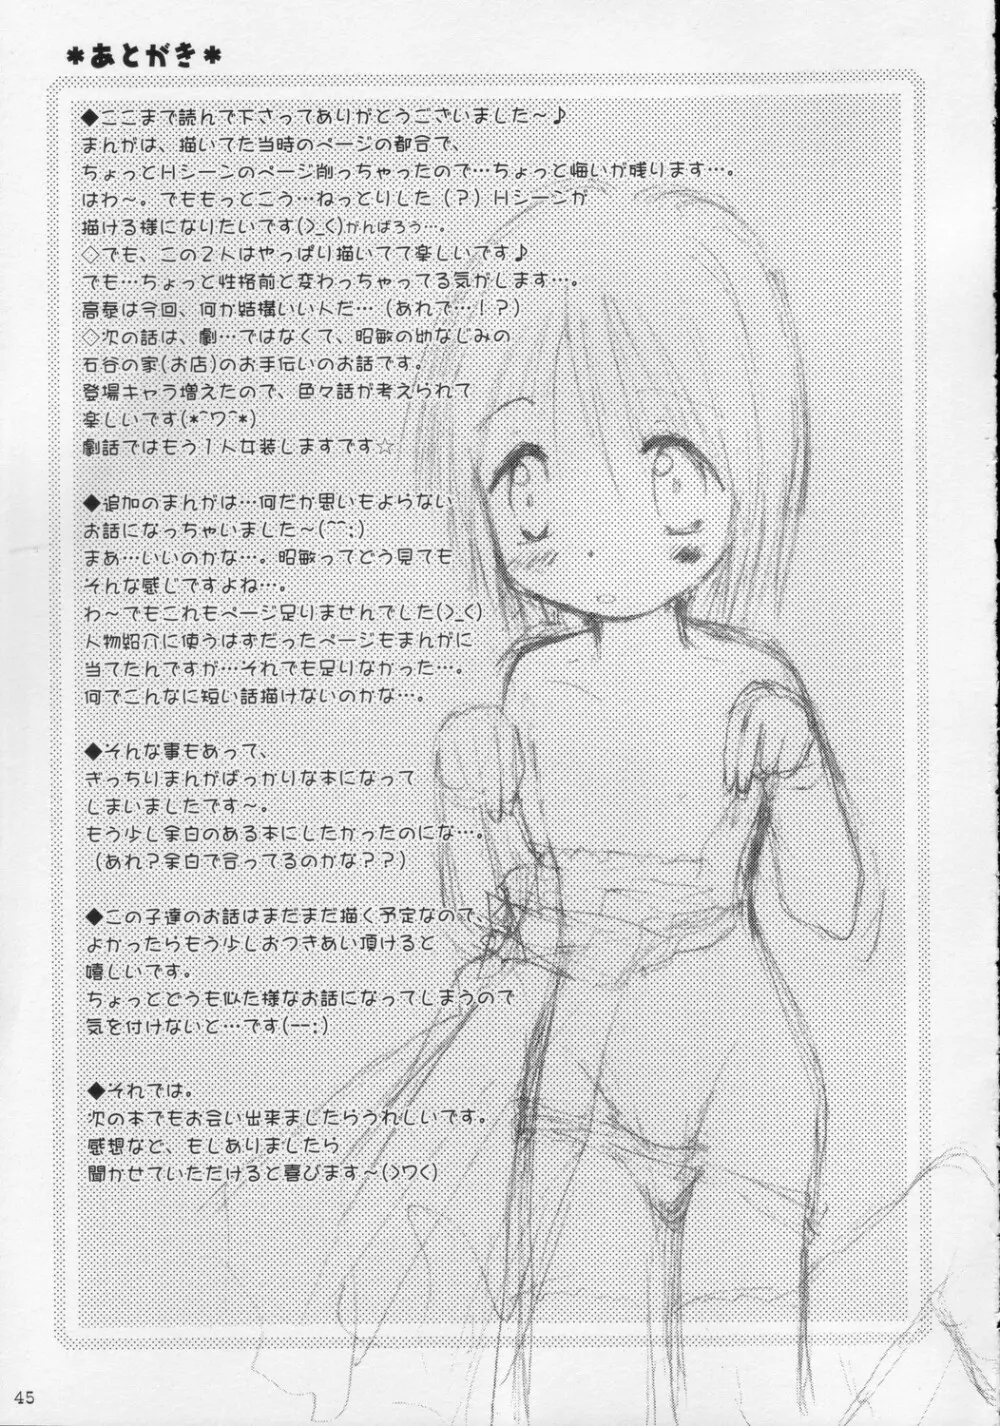 *あとがき*
◆ここまで読んで下さってありがとうございました～♪
まんがは、描いてた当時のページの都合で、
ちょっとHシーンのページ削っちゃったので…ちょっと悔いが残ります…。
はわ～。でももっとこう…ねっとりした（？）Hシーンが
描ける様になりたいです(>_<)がんばろう…。
◇でも、この2人はやっぱり描いてて楽しいです♪
でも…ちょっと性格前と変わっちゃってる気がします…。
高泰は今回、何か結構いい人だ…（あれで…！？）
◇次の話は、劇…ではなくて、昭敏の幼なじみの
石谷の家(お店)のお手伝いのお話です。
登場キャラ増えたので、色々話が考えられて
楽しいです(*^ワ^*)
劇話ではもう1人女装しますです☆
◆追加のまんがは…何だか思いもよらない
お話になっちゃいました～(^^;)
まあ…いいのかな…。昭敏ってどう見ても
そんな感じですよね…。
わ～でもこれもページ足りませんでした(>_<)
人物紹介に使うはずだったページもまんがに
当てたんですが…それでも足りなかった…。
何でこんなに短い話描けないのかな…。
◆そんな事もあって、
ぎっちりまんがばっかりな本になって
しまいましたです～。
もう少し余白のある本にしたかったのにな…。
（あれ？余白で合ってるのかな？？）
◆この子達のお話はまだまだ描く予定なので、
よかったらもう少しおつきあい頂けると
嬉しいです。
ちょっとどうも似た様なお話になってしまうので
気を付けないと…です(--;)
◆それでは。
次の本でもお会い出来ましたらうれしいです。
感想など、もしありましたら
聞かせていただけると喜びます～(>ワ<)
45